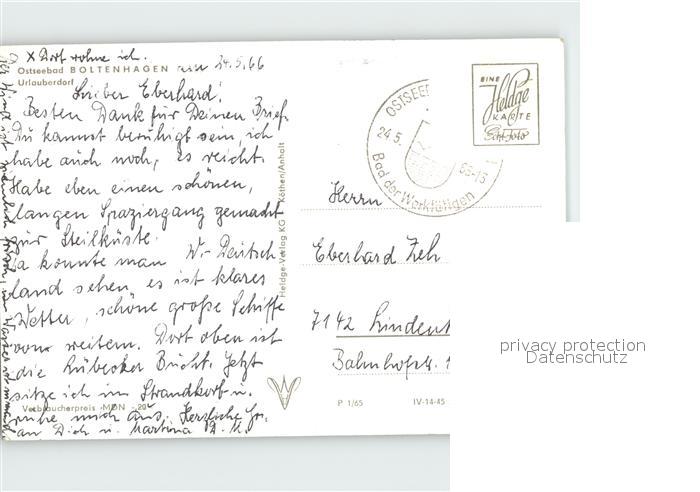 x Dort wohne ich.
Ostseebad BOLTENHAGEN
Urlauberdorf
24.5.66
Lieber Eberhard!
Besten Dank für Deinen Brief.
Du kannst beruhigt sein, ich
habe auch noch, es reicht.
Habe eben einen schönen,
langen Spaziergang gemacht
zur Steilküste.
Da konnte man W.-Deutsch
land sehen, es ist klares
Wetter, schöne große Schiffe
vom weitem. Dort oben ist
die Lübecker Bucht. Jetzt
sitze ich im Strandkorb u.
Verbraucherpreis MDN -,20
ruhe mich aus. Herzliche Gr.
an Dich u. Martina D. M.
Der Wind ist ziemlich frisch, im Wasser ist
Heldge-Verlag KG Köthen/Anhalt
OSTSEEB
24.5.
66-15
Bad der Werktätigen
EINE
Heldge
KARTE
Echt Foto
Herrn
Eberhard Zeh
7142 Lindent
Bahnhofstr. 1
P 1/65
IV-14-45
privacy protection
Datenschutz